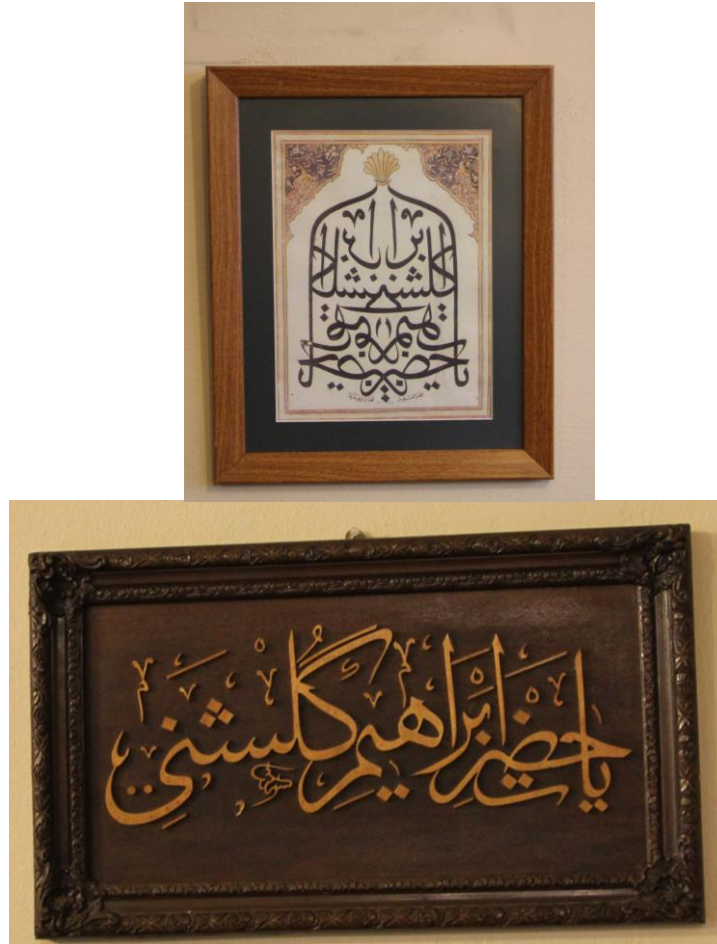 يا حضرت ابراهيم گلشنى
يَا حَضْرَتِ اِبْرَاهِيمِ گُلْشَنِي